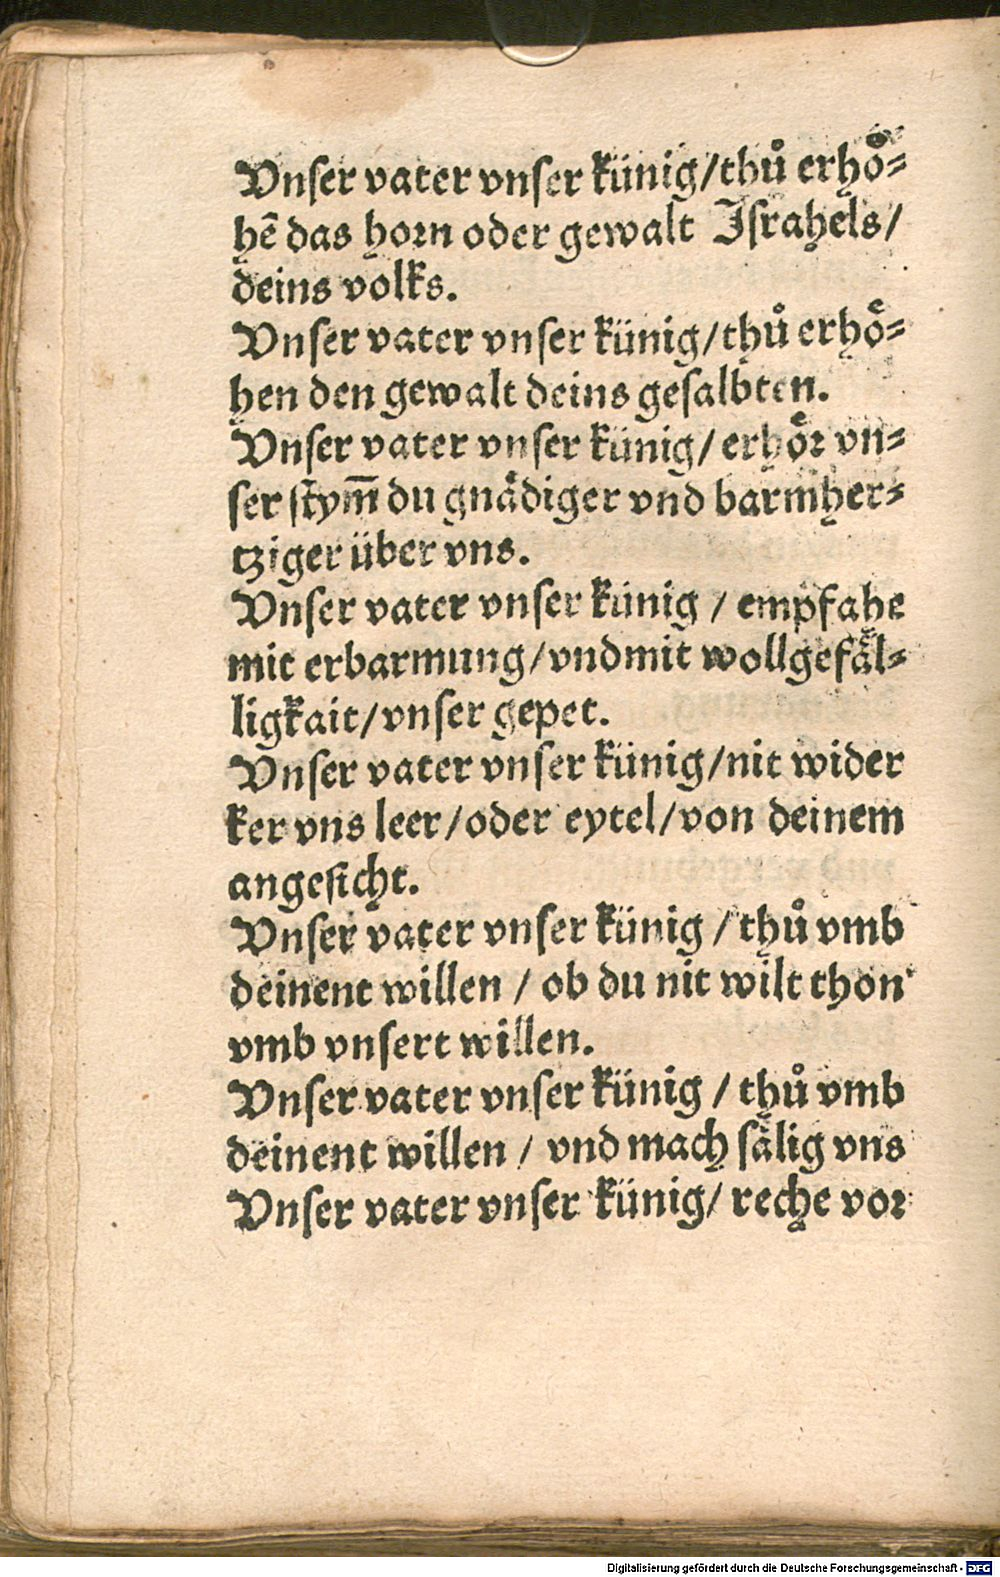 Vnser vater vnser künig/thuͦ erhoͤ⸗
hē das horn oder gewalt Jſrahels/
deins volks.
Vnſer vater vnſer künig/thuͦ erhoͤ⸗
hen den gewalt deins geſalbten.
Vnſer vater vnſer künig/ erhoͤr vn⸗
ſer ſtym̄ du gnaͤdiger vnd barmher⸗
tziger über vns.
Vnſer vater vnſer künig / empfahe
mit erbarmung/vndmit wollgefaͤl⸗
ligkait/vnſer gepet.
Vnſer vater vnſer künig/nit wider
ker vns leer/oder eytel/von deinem
angeſicht.
Vnſer vater vnſer künig / thuͦ vmb
deinent willen / ob du nit wilt thon
vmb vnſert willen.
Vnſer vater vnſer künig / thuͦ vmb
deinent willen / vnd mach ſaͤlig vns
Vnſer vater vnſer künig/ reche vor
Digitalisierung gefördert durch die Deutsche Forschungsgemeinschaft - DFG